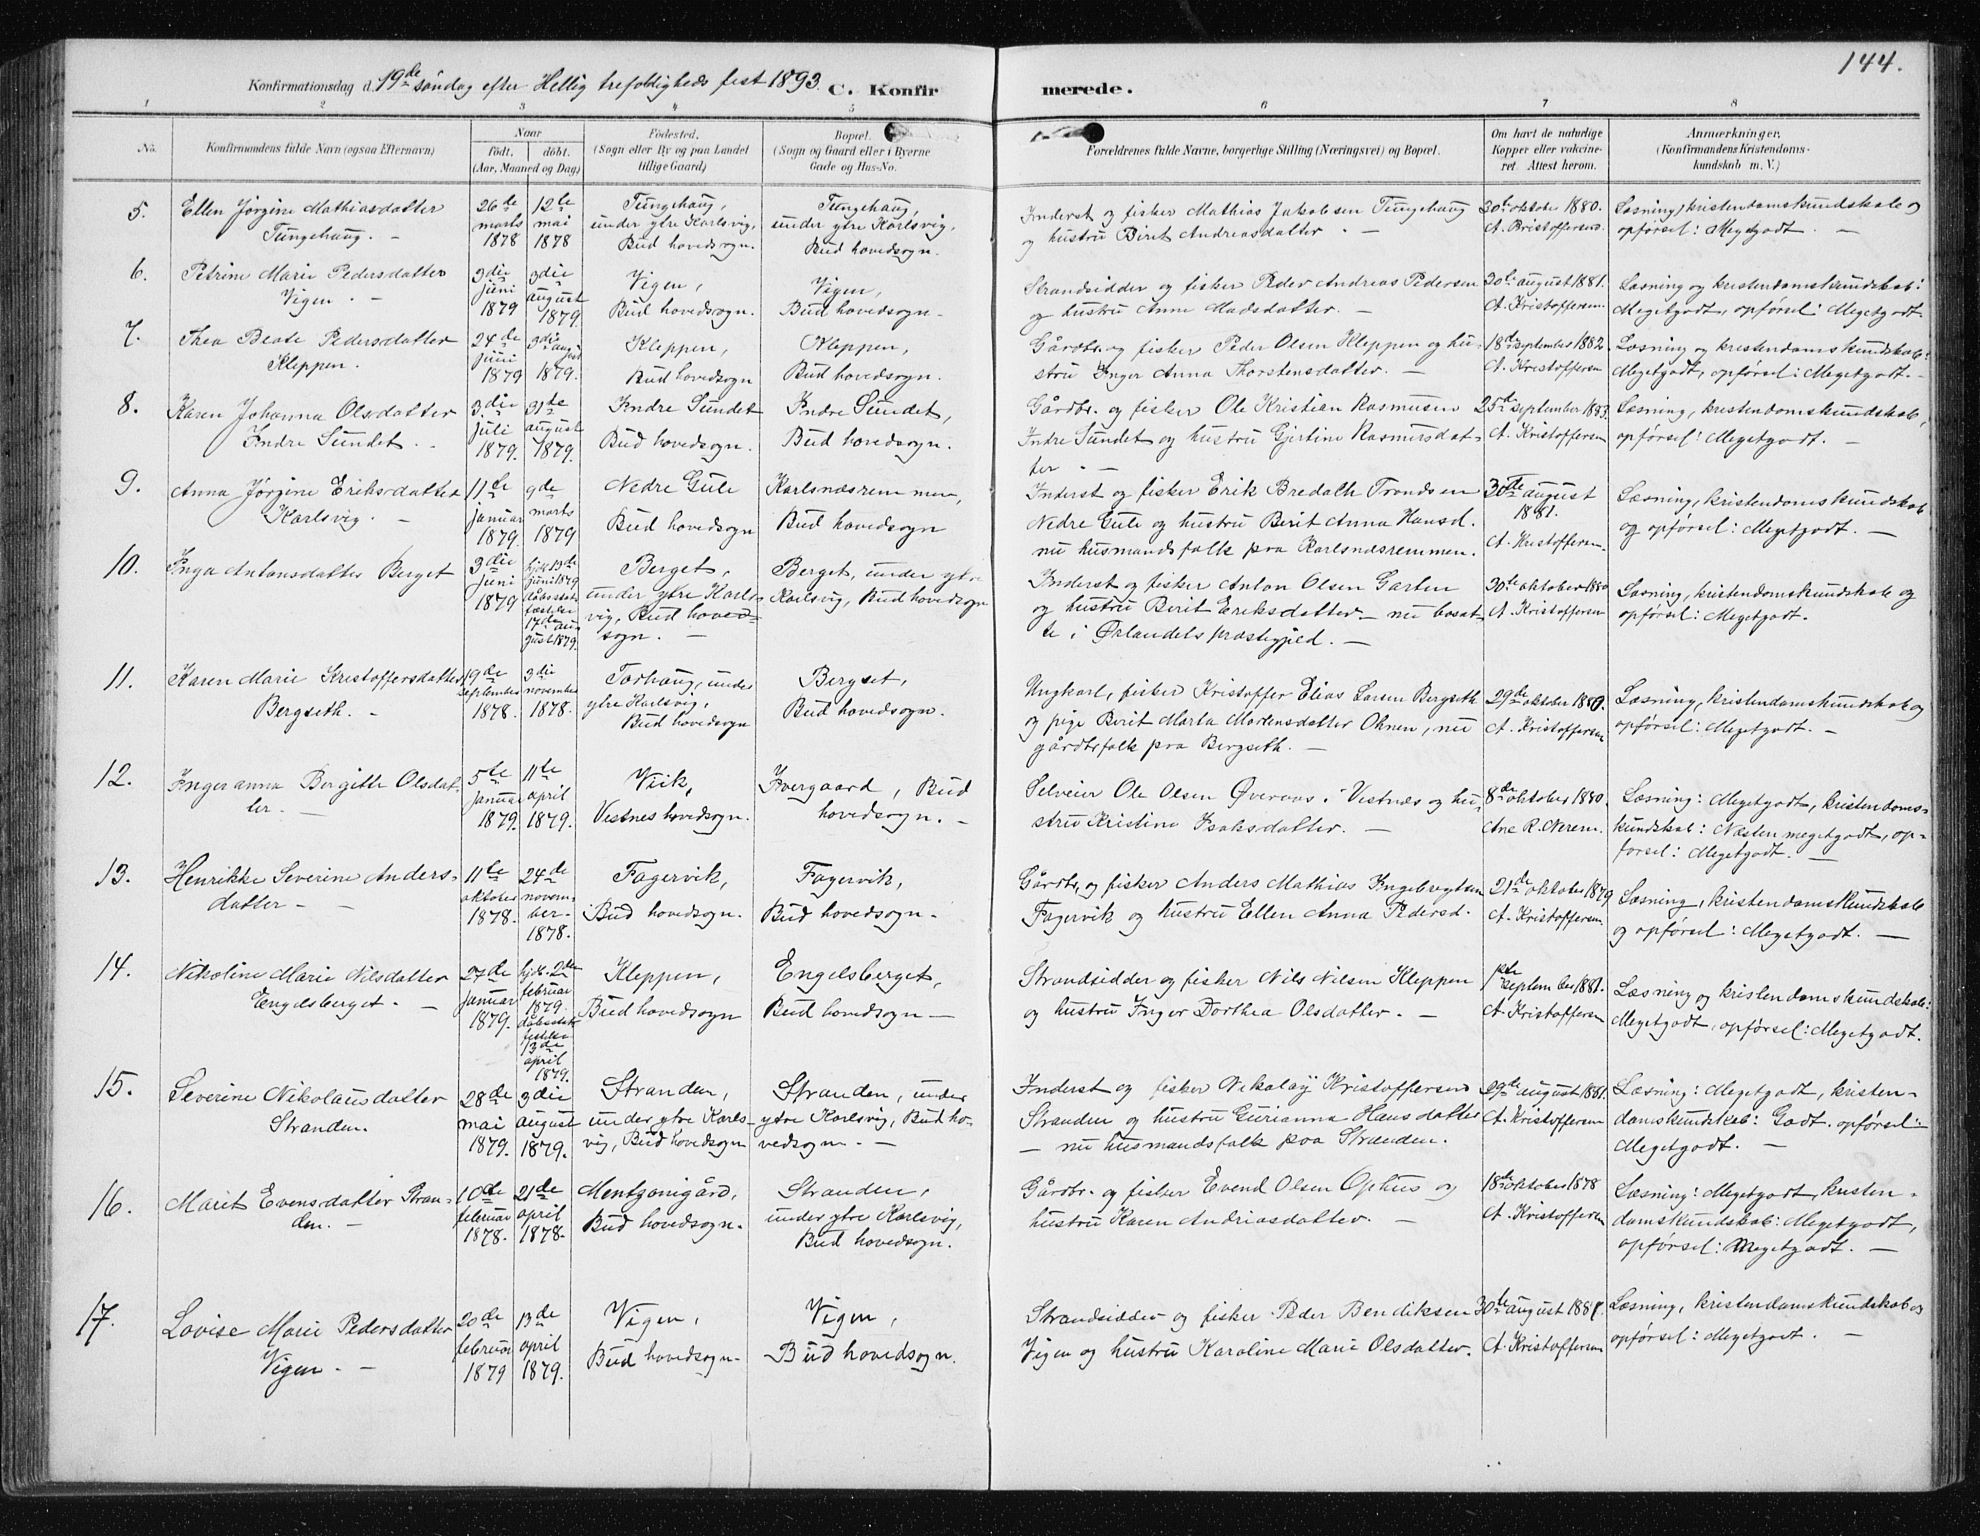 144.
Konfirmationsdag d. 19de søndag efter Hellig trefoldigheds fest 1893. C. Konfirmerede.
1 2 3 4 5 6 7 8
No. Konfirmandens fulde Navn (ogsaa Efternavn)
Naar
født, døbt.
(Aar, Maaned og Dag)
Fødested.
(Sogn eller By og paa Landet
tillige Gaard)
Bopæl.
(Sogn og Gaard eller i Byerne
Gade og Hus-No.
Forældrenes fulde Navne, borgerlige Stilling (Næringsvei) og Bopæl.
Om havt de naturlige
Kopper eller vakcine-
ret. Attest herom.
Anmerkninger.
(Konfirmandens Kristendoms-
kundskab m. V.)
5.
Ellen Jørgine Mathiasdatter
Tungehaug. -
26de
marts
1878
12te
mai
1878
Tungehaug,
under ytre Karlsvig,
Bud hovedsogn.
Tungehaug,
under ytre Karlsvig,
Bud hovedsogn.
Inderst og fisker Mathias Jakobsen Tungehaug
og hustru Birit Andreasdatter. -
30te oktober 1880.
A. Kristoffersen.
Læsning, kristendomskundskab og
opførsel: Megetgodt. -
6.
Petrine Marie Pedersdatter
Vigen. -
3die
juni
1879
3die
august
1879.
Vigen,
Bud hovedsogn.
Vigen,
Bud hovedsogn. -
Strandsidder og fisker Peder Andreas Pedersen
og hustru Anne Madsdatter. -
30te august 1881.
A. Kristoffersen.
Læsning og kristendomskundskab:
Megetgodt, opførsel: Megetgodt.
7.
Thea Beate Pedersdatter
Kleppen.
24de
juni
1879
3die august
1879.
Kleppen,
Bud hovedsogn
Kleppen,
Bud hovedsogn.
Gårdbr. og fisker Peder Olsen Kleppen og hu-
stru Inger Anna Thorstensdatter. -
18de september 1882.
A. Kristoffersen
Læsning og kristendomskundskab:
Megetgodt, opførsel: Megetgodt. -
8.
Karen Johanna Olsdatter
Indre Sundet. -
3die
juli
1879.
31te
august
1879.
Indre Sundet
Bud hovedsogn.
Indre Sundet,
Bud hovedsogn.
Gårdbr. og fisker Ole Kristian Rasmusen
Indre Sundet og hustru Gjertine Rasmusdat-
ter. -
25de september 1883.
A. Kristoffersen
Læsning, kristendomskundskab,
opførsel: Megetgodt. -
9.
Anna Jørgine Eriksdatter
Karlsvig. -
11te
januar
1879.
9de
marts
1879
Nedre Gule
Bud hovedsogn
Karlsnæsremmen,
Bud hovedsogn
Inderst og fisker Erik Bredath Trondsen
Nedre Gule og hustru Berit Anna Hansd.
nu husmandsfolk paa Karlsnæsremmen.
30te august
1881.
A. Kristoffersen.
Læsning, kristendomskundskab
og opførsel: Megetgodt. -
10.
Inga Antonsdatter Berget
3die
juni
1879
hjd. 13de
juni 1879
dåbsstad-
fæstelse
17de au-
gust 1879.
Berget,
under ytre Karls-
vig, Bud hoved-
sogn. -
Berget, under ytre
Karlsvig, Bud hovedsogn
Inderst og fisker Anton Olsen Garten
og hustru Berit Eriksdatter - nu bosat-
te i Ørlandets præstegjeld. -
30te oktober 1880
A. Kristoffersen
Læsning, kristendomskundskab og
opførsel: Megetgodt.
11.
Karen Marie Kristoffersdatter
Bergseth. -
19de
september
1878.
3die
november
1878.
Torhaug, under
ytre Karlsvig,
Bud hovedsogn
Bergset,
Bud hovedsogn.
Ungkarl, fisker Kristoffer Elias Larsen Bergseth
og pige Berit Marta Mortensdatter Ohnen, nu
gårdbfolk paa Bergseth. -
29de oktober 1880.
A. Kristoffersen
Læsning, kristendomskundskab og
opførsel: Megetgodt. -
12.
Ingeranna Bergitte Olsdat-
ter. -
5te
januar
1879.
11te
april
1879.
Viik,
Vestnes hovedsogn.
Hvergaard, Bud
hovedsogn. -
Selveier Ole Olsen Øveraas i Vestnæs og hu-
stru Kristine Isaksdatter. -
8de oktober 1880.
Ane R. Nerem.
Læsning: Megetgodt, kristendoms-
kundskab: Næsten megetgodt, op-
førsel: Megetgodt. -
13.
Henrikke Severine Anders-
datter - -
11te
oktober
1878.
24de
novem-
ber
1878.
Fagervik,
Bud hovedsogn.
Fagervik,
Bud hovedsogn.
Gårdbr. og fisker Anders Mathias Ingebregtsen
Fagervik og hustru Ellen Anna Pedersd.
21de oktober 1879
A. Kristoffersen
Læsning, kristendomskundskab
og opførsel: Megetgodt. -
14.
Nikoline Marie Nilsdatter
Engelsberget. -
27de
januar
1879.
hjd. 2den
februar
1879.
dåbsstad-
festelse
13de
april
1879.
Kleppen,
Bud hovedsogn
Engelsberget,
Bud hovedsogn -
Strandsidder og fisker Nils Nilsen Kleppen
og hustru Inger Dorthea Olsdatter. -
1ste
september 1881.
A. Kristoffersen
Læsning og kristendomskundskab:
Megetgodt, opførsel: Megetgodt.
15.
Severine Nikolausdatter
Stranden.
28de
mai
1879.
3die
august
1879.
Stranden,
under ytre Karls-
vig, Bud hovedsogn
Stranden, under
ytre Karlsvig, Bud ho-
vedsogn. -
Inderst og fisker Nikolay Kristoffersen
Stranden og hustru Gurianna Hansdatter
- nu husmandsfolk paa Stranden.
29de august 1881.
A. Kristoffersen
Læsning: Megetgodt, kristen-
domskundskab: Godt. opførsel:
Megetgodt. -
16.
Marit Evensdatter Stran-
den. -
10de
februar
1878.
21de
april
1878.
Mentzonigård,
Bud hovedsogn.
Stranden,
under ytre Karlsvig,
Bud hovedsogn.
Gårdbr. og fisker Evend Olsen Ophus og
hustru Karen Andriasdatter. -
18de oktober 1878
A. Kristoffersen
Læsning: Megetgodt, kristen-
domskundskab: Megetgodt,
opførsel: Megetgodt. -
17.
Lovise Marie Pedersdatter
Vigen. -
20de
februar
1879
13de
april
1879.
Vigen,
Bud hovedsogn.
Vigen,
Bud hovedsogn.
Strandsidder og fisker Peder Bendiksen
Vigen og hustru Karoline Marie Olsdatter.
30te august 1881.
A. Kristoffersen
Læsning, kristendomskundskab og
opførsel: Megetgodt. -